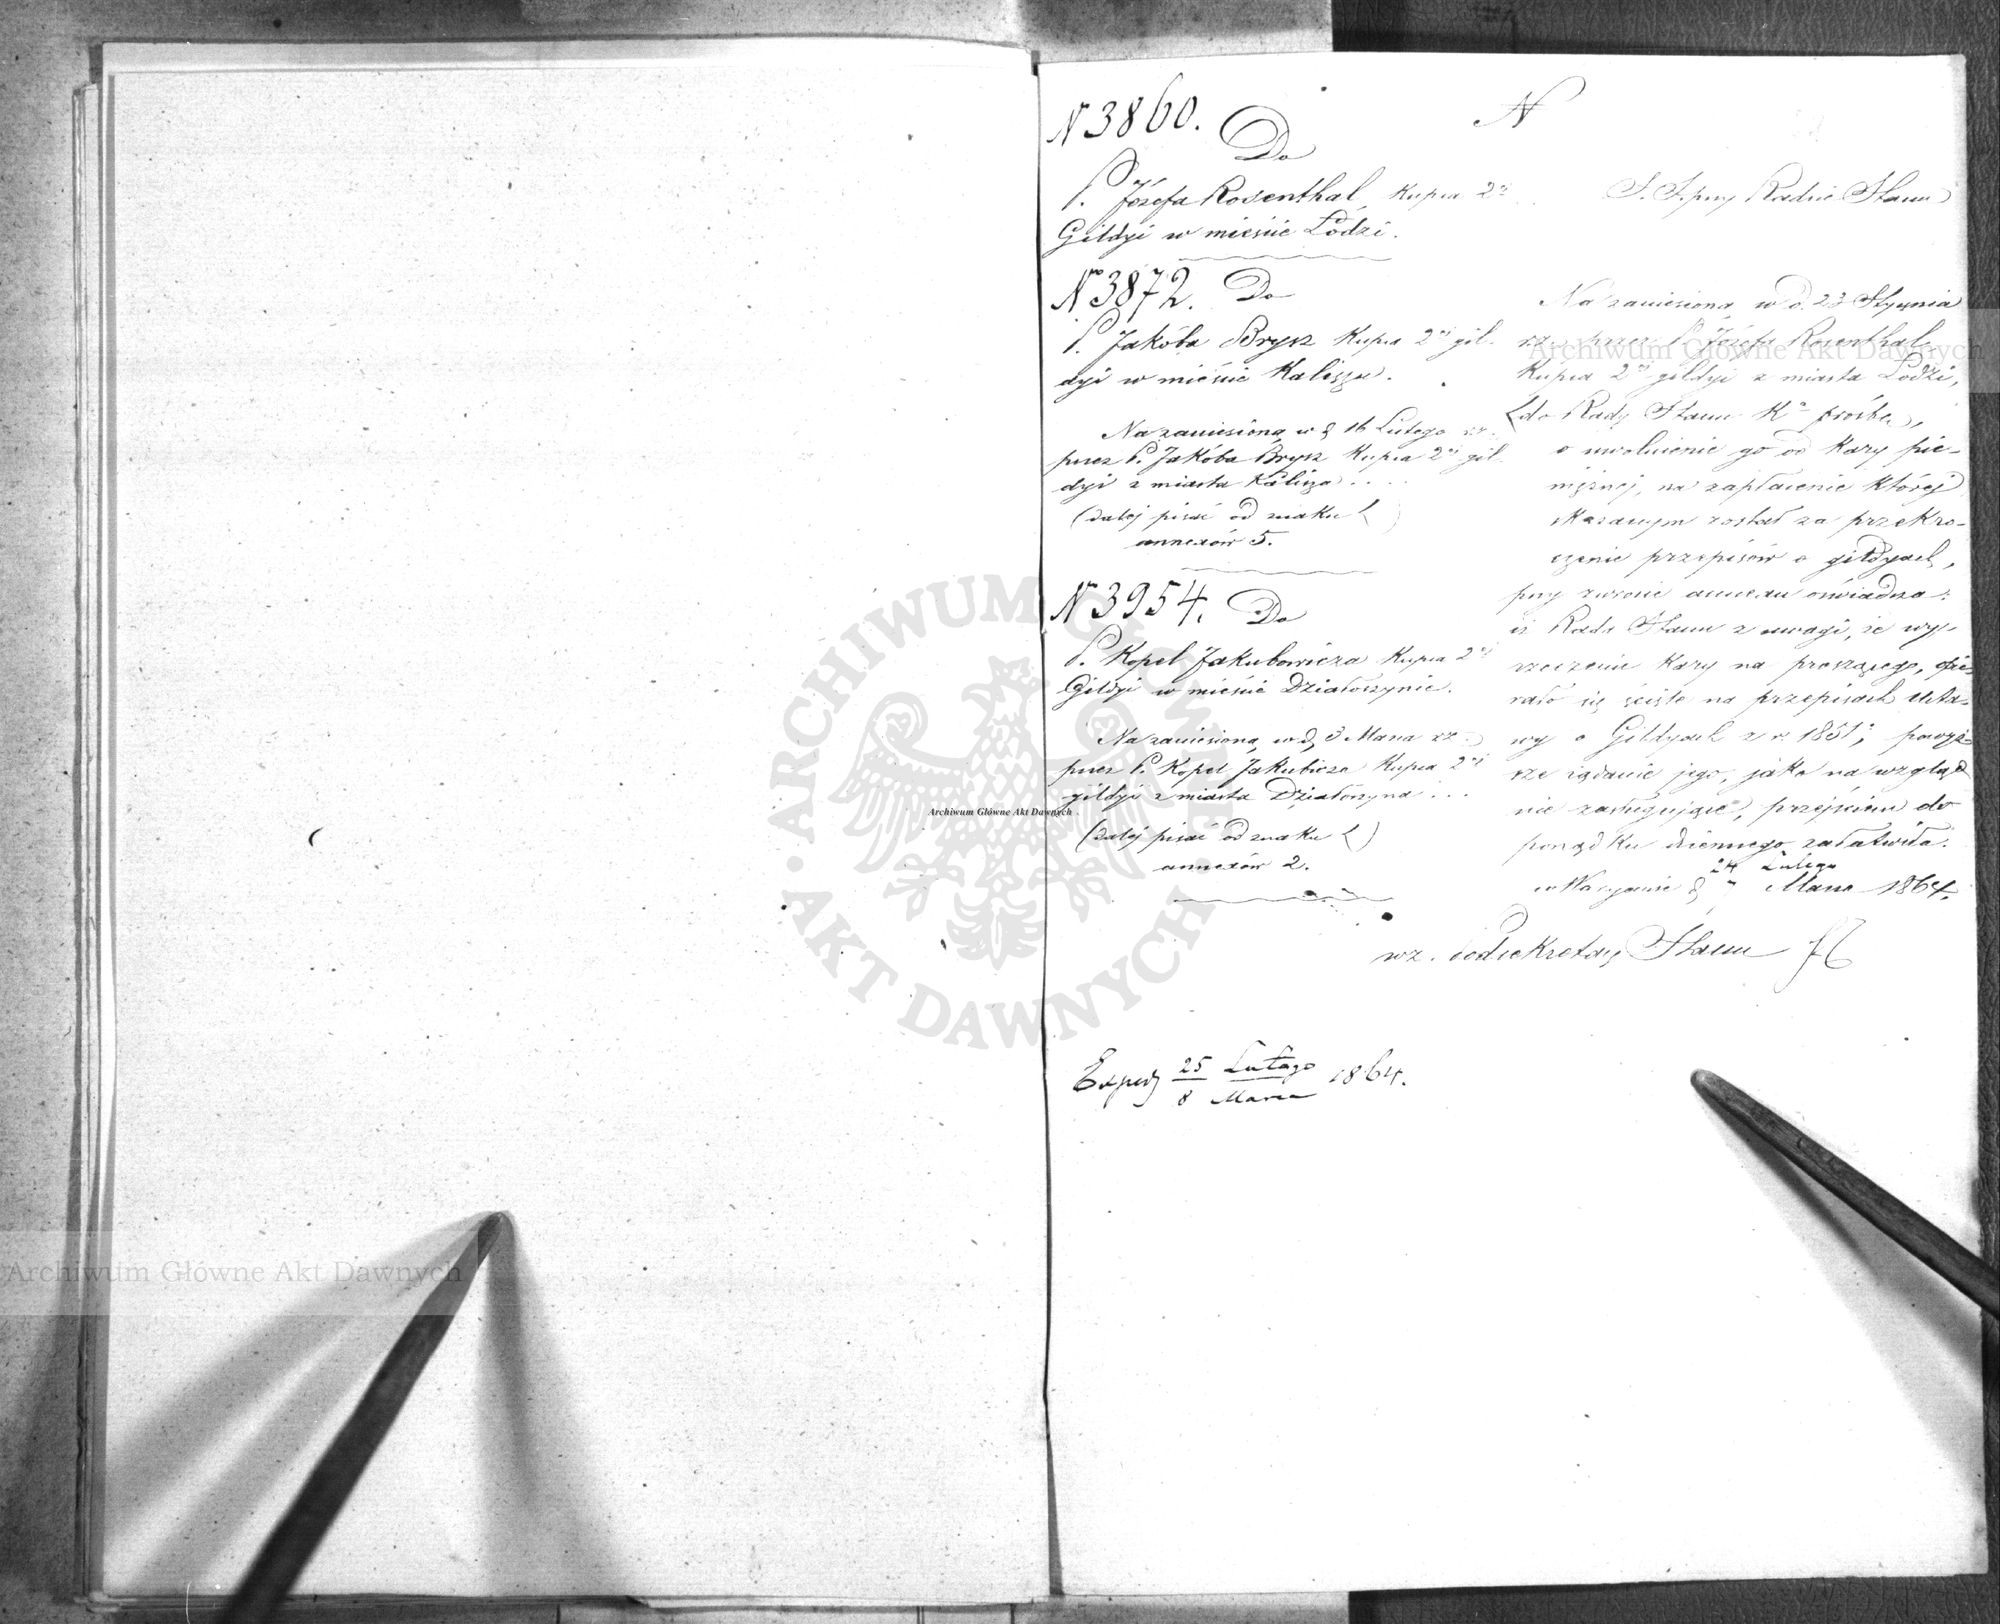 N 3860.
Do
P. Józefa Rosenthal Kupca 2ej
Gildyi w mieście Łodzi.
No 3872. Do
P. Jakóba Brysz Kupca 2ej gil-
dyi w mieście Kaliszu.
Na zaniesioną w d. 16 Lutego rz.
przez P. Jakóba Brysz Kupca 2ej gil-
dyi z miasta Kalisza . . . .
(dalej pisać od znaku ( )
annexów 5.
N 3954. Do
P. Kopel Jakubowicza Kupca 2ej
Gildyi w mieście Działoszynie.
Na zaniesioną w d. 3 Marca rz.
przez P. Kopel Jakubicza Kupca 2ej
gildyi z miasta Działoszyna . . .
(dalej pisać od znaku ( )
annexów 2.
N
S. S. przy Radzie Stanu
Na zaniesioną w d. 23 Stycznia
rz. przez P. Józefa Rosenthal
Kupca 2ej gildyi z miasta Łodzi,
(do Rady Stanu Ka prośbę,
o uwolnienie go od Kary pie-
niężnej, na zapłacenie której
skazanym został za przekro-
czenie przepisów o gildyach,
przy zwrocie annexu oświadcza:
iż Rada Stanu z uwagi, że wy-
rzeczenie Kary na proszącego, opie-
rało się ściśle na przepisach Usta-
wy o Gildyach z r. 1851; powyż-
sze żądanie jego, jako na wzgląd
nie zasługujące, przejściem do
porządku dziennego załatwiła.
24 Lutego
w Warszawie d. " Marca 1864.
wz. Podsekretarz Stanu
Exped 25 Lutego 1864.
8 Marca
ARCHIWUM GŁÓWNE AKT DAWNYCH
Archiwum Główne Akt Dawnych
Archiwum Główne Akt Dawnych
Archiwum Główne Akt Dawnych